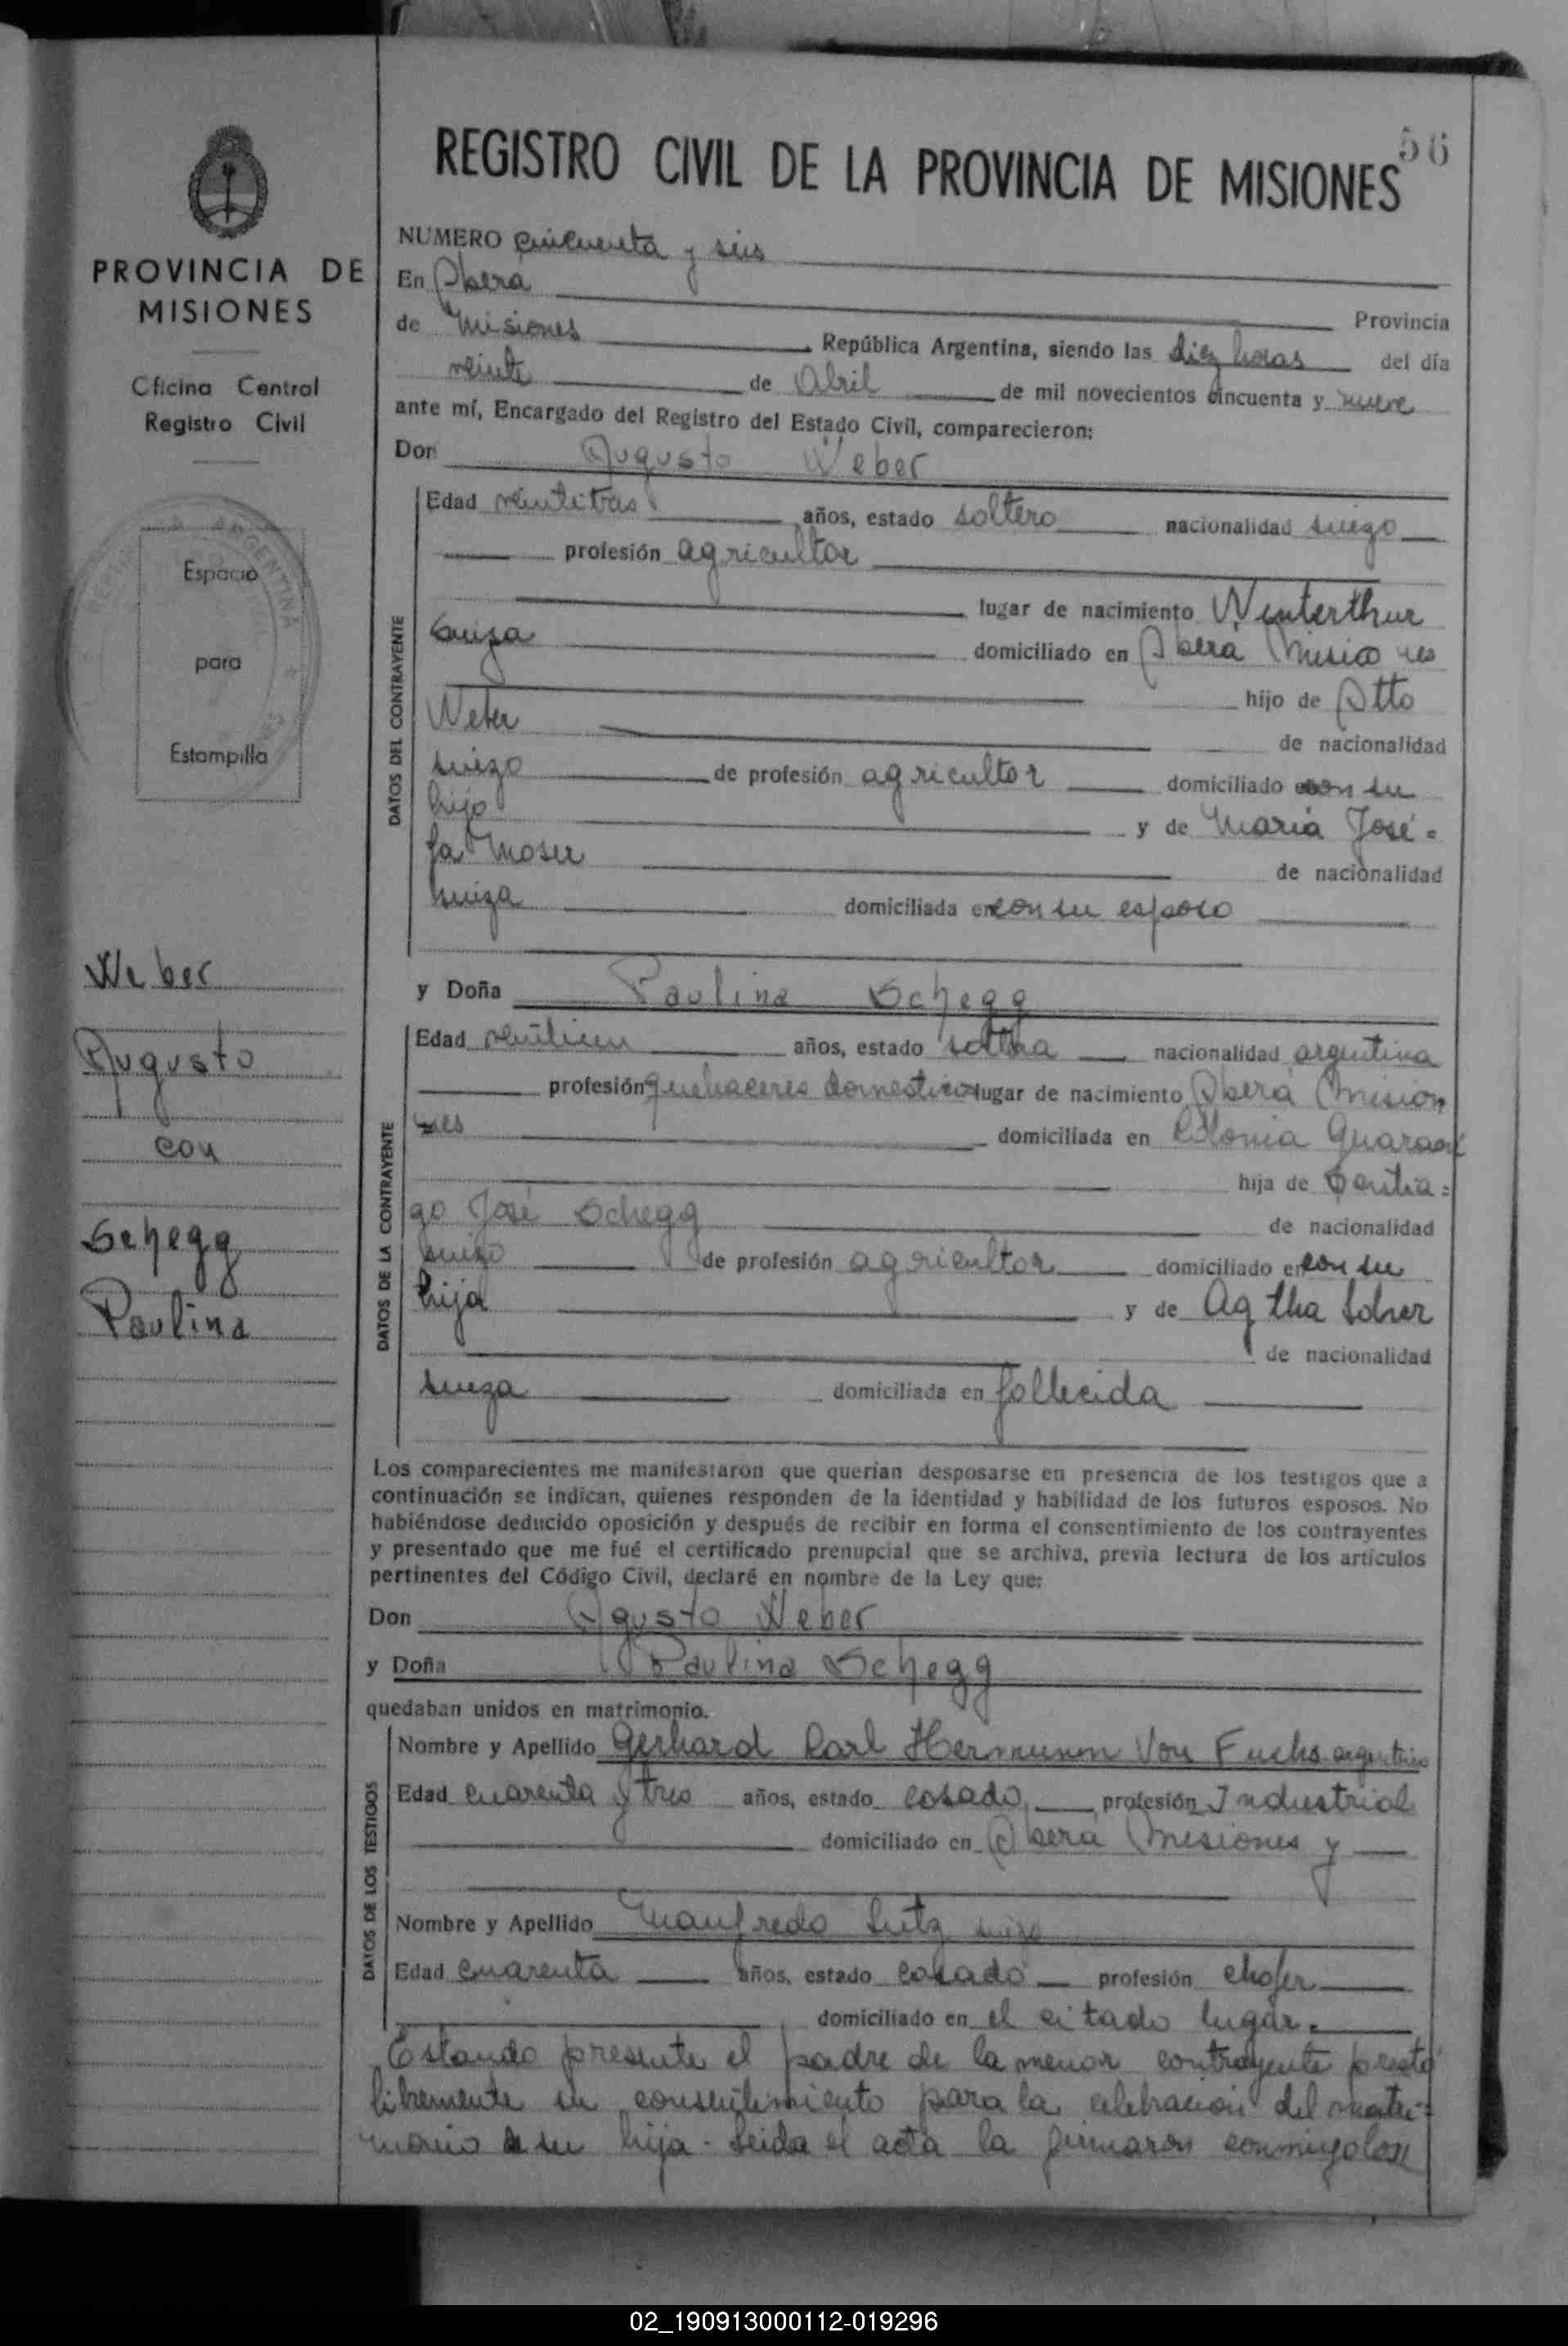 56
REGISTRO CIVIL DE LA PROVINCIA DE MISIONES
PROVINCIA DE
MISIONES
Oficina Central
Registro Civil
Espacio
para
Estampilla
Weber
Augusto
con
Schegg
Paulina
NUMERO cincuenta y seis
En Obera
Provincia
de Misiones República Argentina, siendo las diez horas del día
veinte de Abril de mil novecientos cincuenta y nueve
ante mí, Encargado del Registro del Estado Civil, comparecieron:
Don Augusto Weber
DATOS DEL CONTRAYENTE
Edad veintitres años, estado soltero nacionalidad suizo
profesión agricultor
lugar de nacimiento Winterthur
Suiza domiciliado en Obera Misiones
hijo de Otto
Weber de nacionalidad
suizo de profesión agricultor domiciliado con su
hijo y de Maria José=
fa Moser de nacionalidad
suiza domiciliada en con su esposo
y Doña Paulina Schegg
DATOS DE LA CONTRAYENTE
Edad veintiun años, estado soltera nacionalidad argentina
profesión quehaceres domesticos lugar de nacimiento Oberá Mision
nes domiciliada en Colonia Guarani
hija de Santia=
go José Schegg de nacionalidad
suizo de profesión agricultor domiciliado en con su
hija y de Agtha
de nacionalidad
suiza domiciliada en fallecida
Los comparecientes me manifestaron que querían desposarse en presencia de los testigos que a
continuación se indican, quienes responden de la identidad y habilidad de los futuros esposos. No
habiéndose deducido oposición y después de recibir en forma el consentimiento de los contrayentes
y presentado que me fué el certificado prenupcial que se archiva, previa lectura de los artículos
pertinentes del Código Civil, declaré en nombre de la Ley que:
Don Agusto Weber
y Doña Paulina Schegg
quedaban unidos en matrimonio.
DATOS DE LOS TESTIGOS
Nombre y Apellido Gerhard Carl Hermunn Von Fuchs argentino
Edad cuarenta y tres años, estado casado profesión Industrial
domiciliado en Oberá Misiones y
Nombre y Apellido Manfredo Lutz suizo
Edad cuarenta años, estado casado profesión chofer
domiciliado en el citado lugar.
Estando presente el padre de la menor contrayente prestó
libremente su consentimiento para la celebración del matri=
monio de su hija - Leida el acta la firmaron conmigo los
02_190913000112-019296